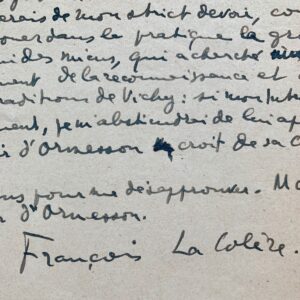 erais de mon strict devoir, co
oner dans la pratique la gra
ui des miens, qui a cherché
ment de la reconnaissance et
raditions de Vichy : si mon
ment, je m'abstiendrai de lui
ir d'Ormesson croit de sa
ns pour me désapprouver. Ma
n d'Ormesson.
François La Colère.